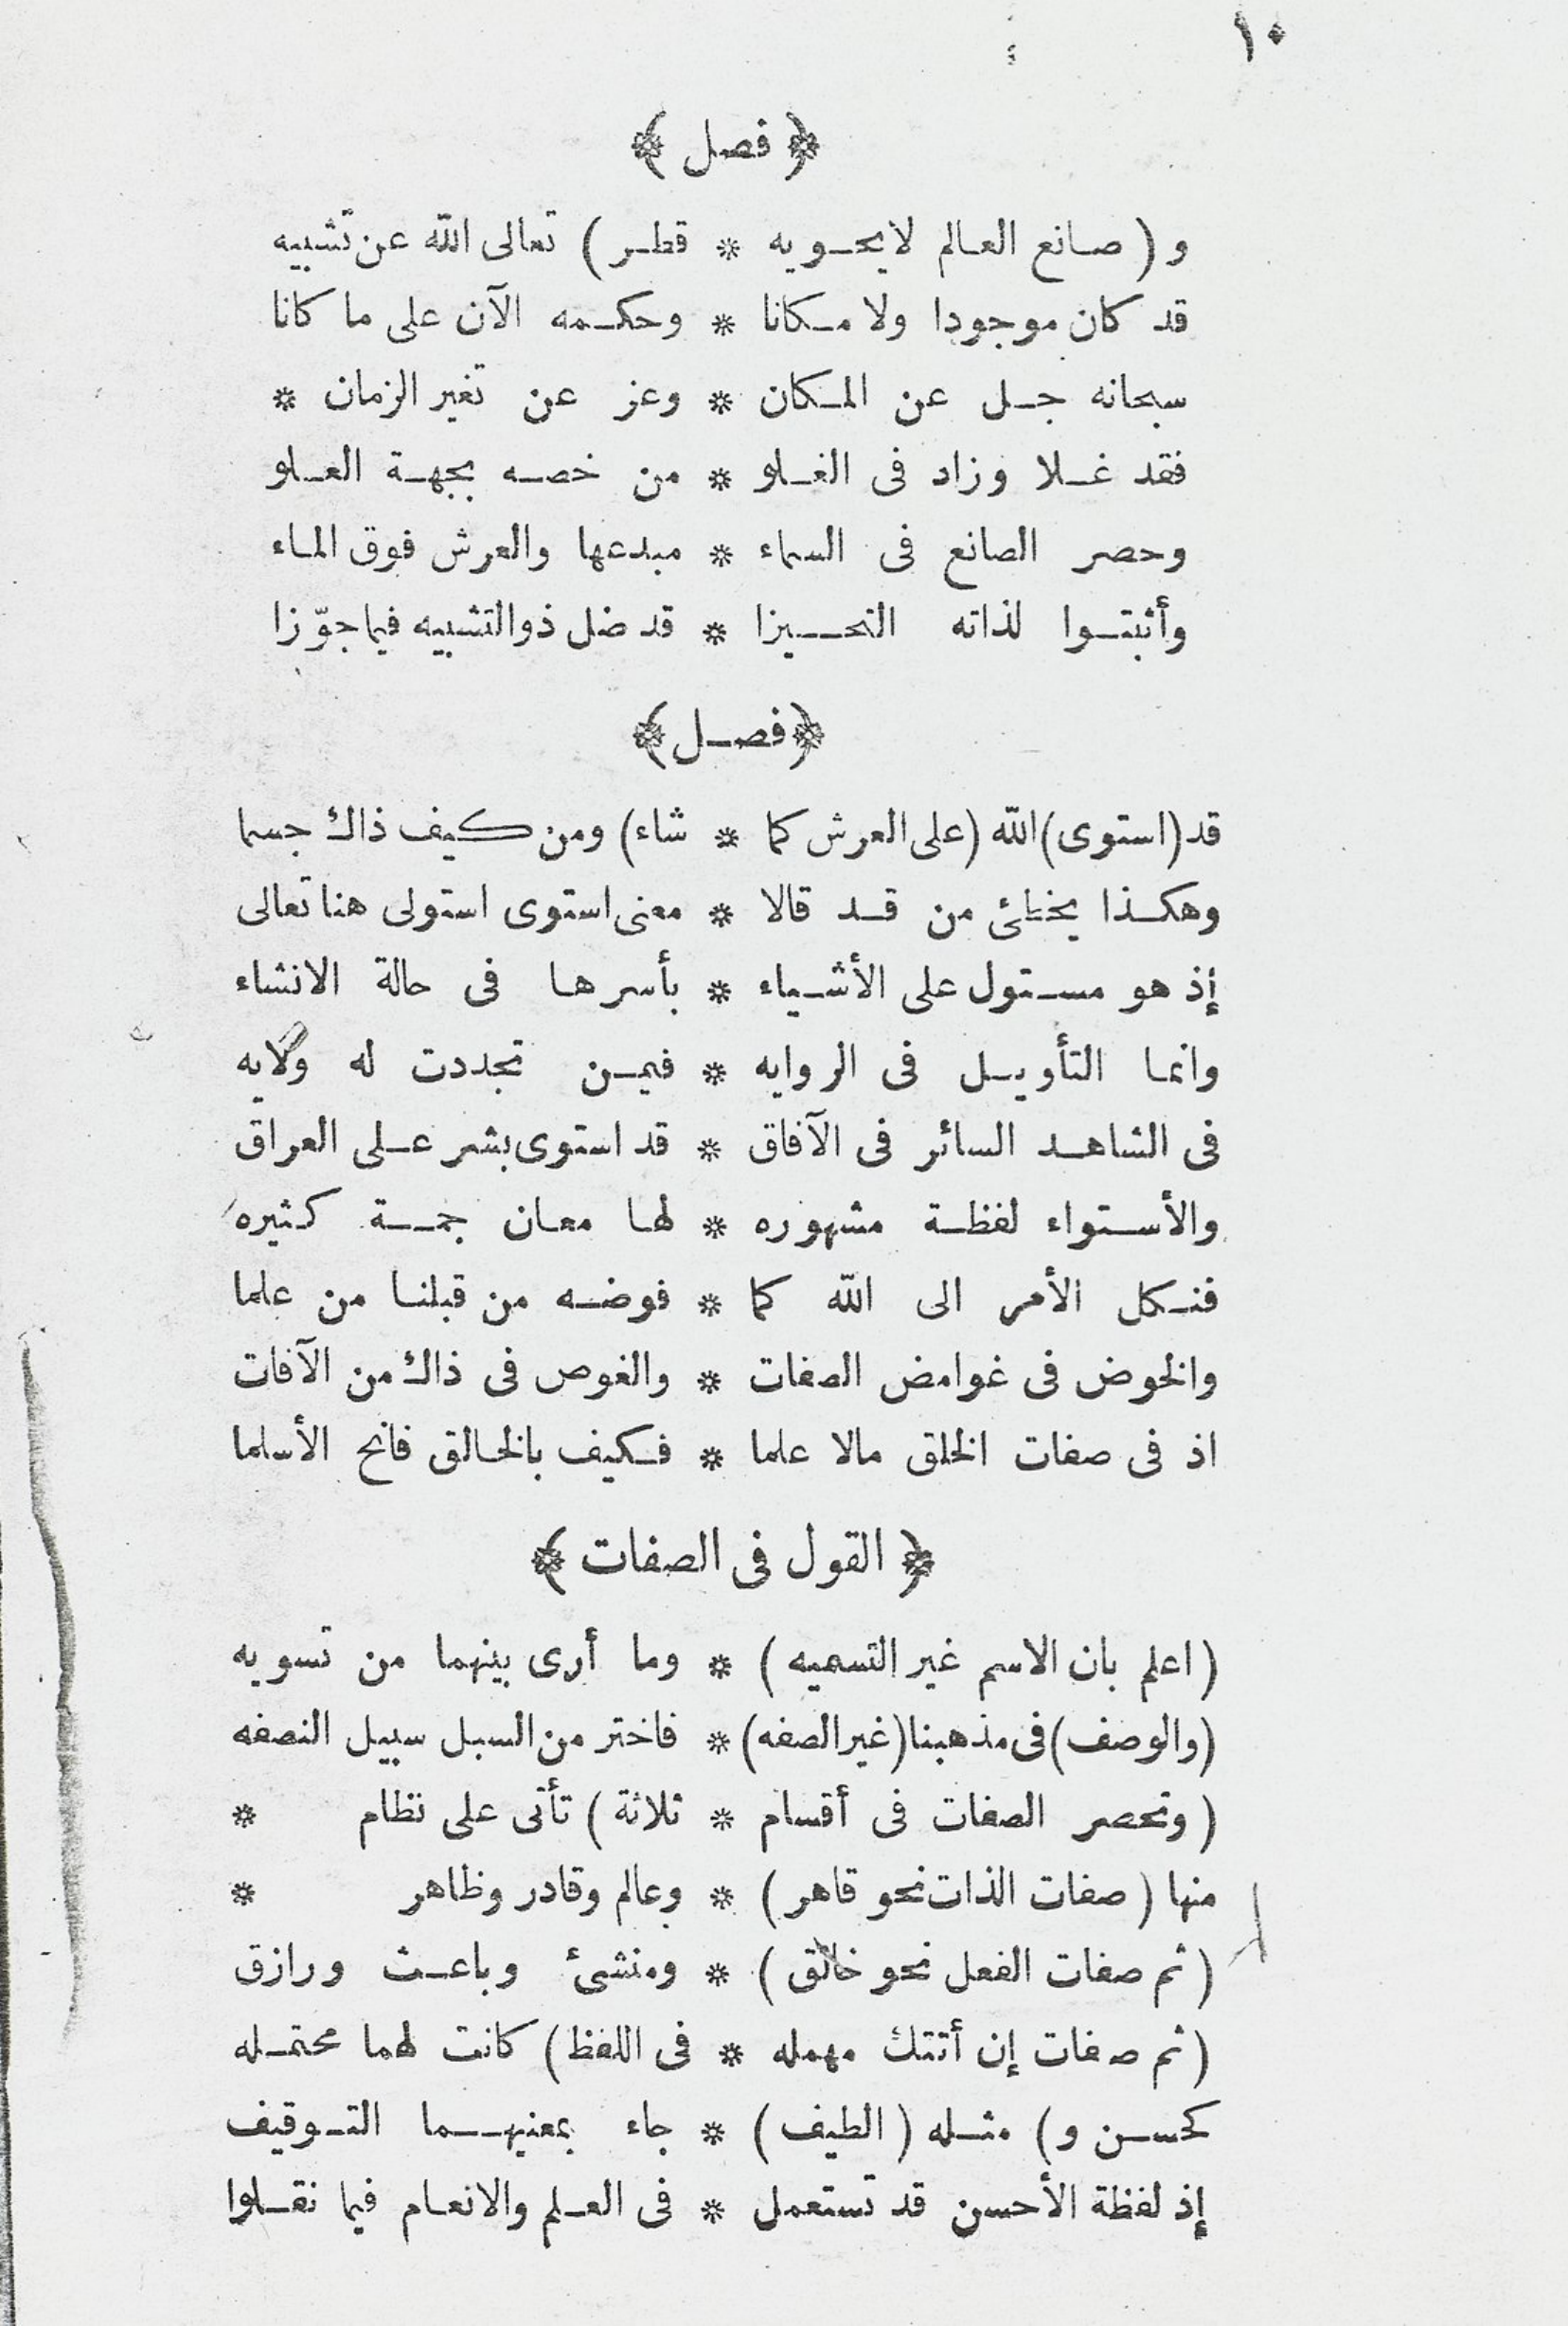 ١٠
﴿ فصل ﴾
و ( صانع العالم لايحويه * قطر ) تعالى الله عن تشبيه
قد كان موجودا ولا مكانا * وحكمه الآن على ما كانا
سبحانه جل عن المكان * وعز عن تغير الزمان *
فقد غلا وزاد فى الغلو * من خصه بجهة العلو
وحصر الصانع فى السماء * مبدعها والعرش فوق الماء
وأثبتوا لذاته التحيزا * قد ضل ذوالتشبيه فيما جوّزا
﴿ فصل ﴾
قد (استوى) الله (على العرش كما * شاء) ومن كيف ذاك جسما
وهكذا يخطئ من قد قالا * معنى استوى استولى هنا تعالى
إذ هو مستول على الأشياء * بأسرها فى حالة الانشاء
وانما التأويل فى الروايه * فيمن تجددت له ولايه
فى الشاهد السائر فى الآفاق * قد استوى بشر على العراق
والأستواء لفظة مشهوره * لها معان جمة كثيره
فنكل الأمر الى الله كما * فوضه من قبلنا من علما
والخوض فى غوامض الصفات * والغوص فى ذاك من الآفات
اذ فى صفات الخلق مالا علما * فكيف بالخالق فانح الأسلما
﴿ القول فى الصفات ﴾
( اعلم بان الاسم غير التسميه ) * وما أرى بينهما من تسويه
(والوصف) فى مذهبنا (غير الصفه) * فاختر من السبل سبيل النصفه
( وتحصر الصفات فى أقسام * ثلاثة ) تأتى على نظام *
منها ( صفات الذات نحو قاهر ) * وعالم وقادر وظاهر *
( ثم صفات الفعل نحو خالق ) * ومنشئ وباعث ورازق
( ثم صفات إن أتتك مهمله * فى اللفظ ) كانت لهما محتمله
كحسن و ) مثله ( الطيف ) * جاء بمعنيهما التوقيف
إذ لفظة الأحسن قد تستعمل * فى العلم والانعام فيما نقلوا